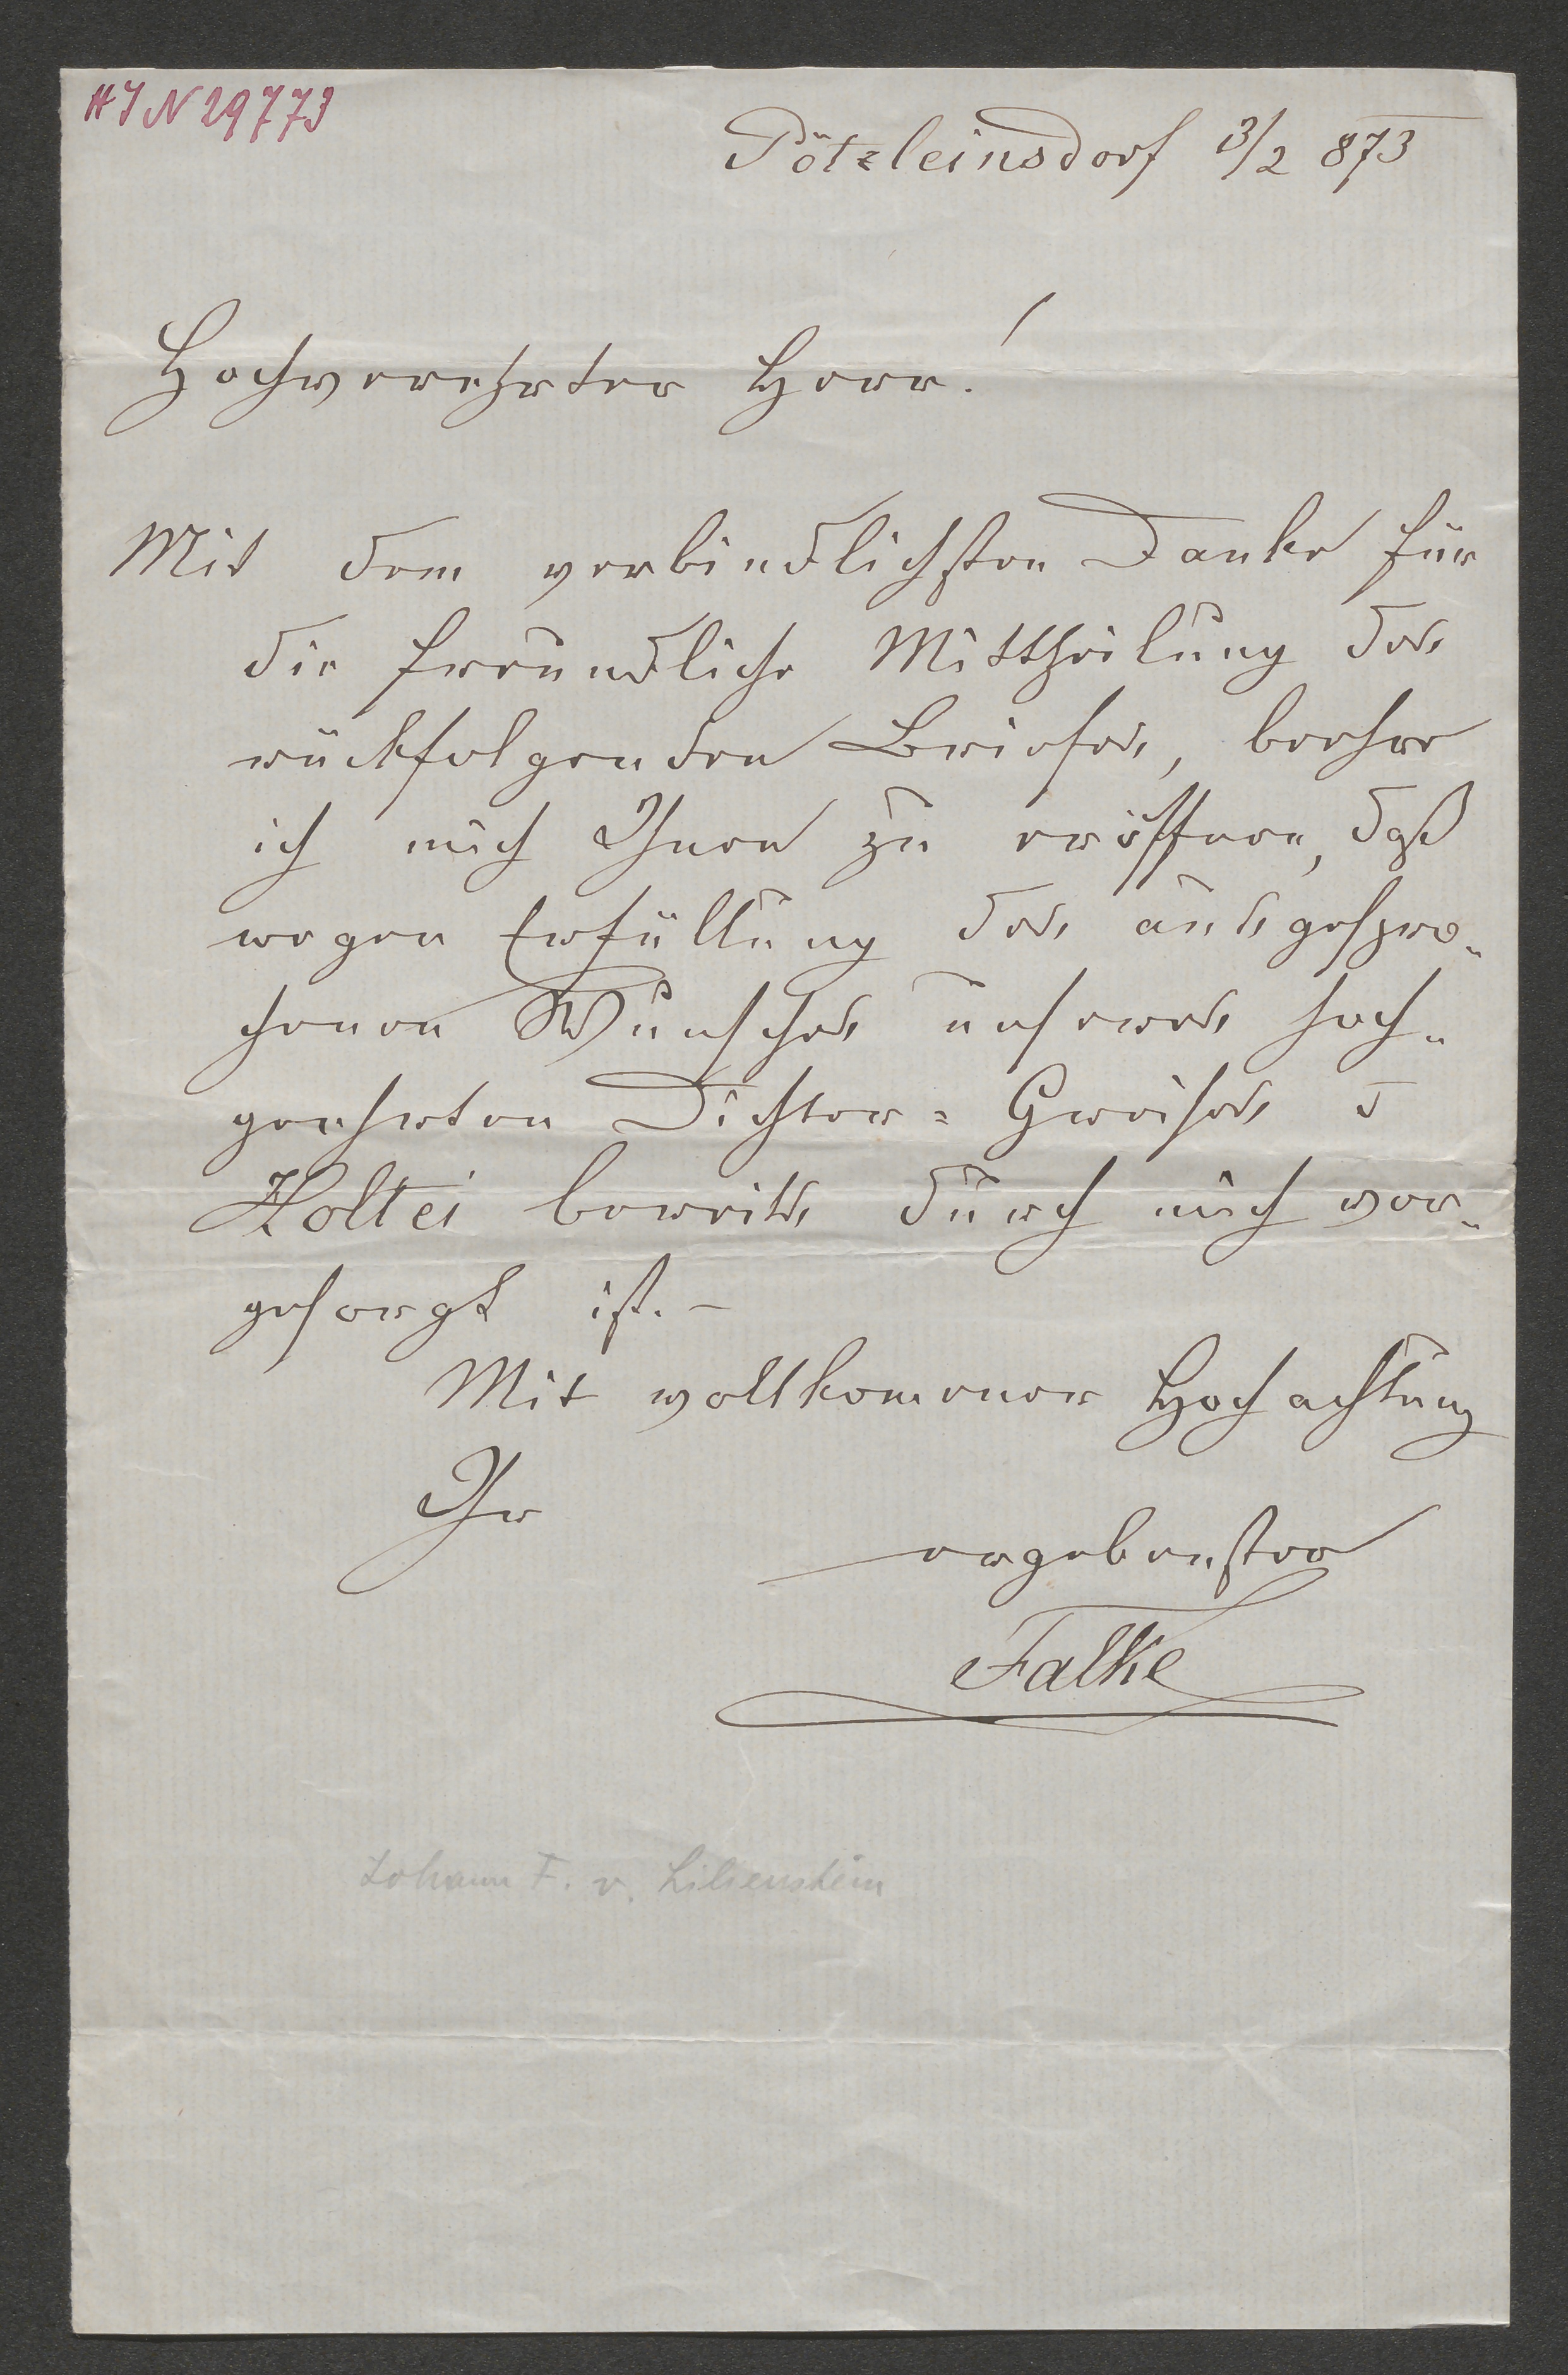 HIN 29773
Pötzleinsdorf 3/2 873
Hochverehrter Herr!
Mit dem verbindlichsten Danke für
die freundliche Mittheilung des
rückfolgenden Briefes, beehre
ich mich Ihnen zu eröffnen, daß
wegen Erfüllung des ausgespro-
chenen Wunsches unseres hoch-
geehrten Dichter-Greises v
Holtei bereits durch mich vor-
gesorgt ist. –
Mit vollkommener Hochachtung
Ihr
ergebenster
Falke
Johann F. v. Lilienstein